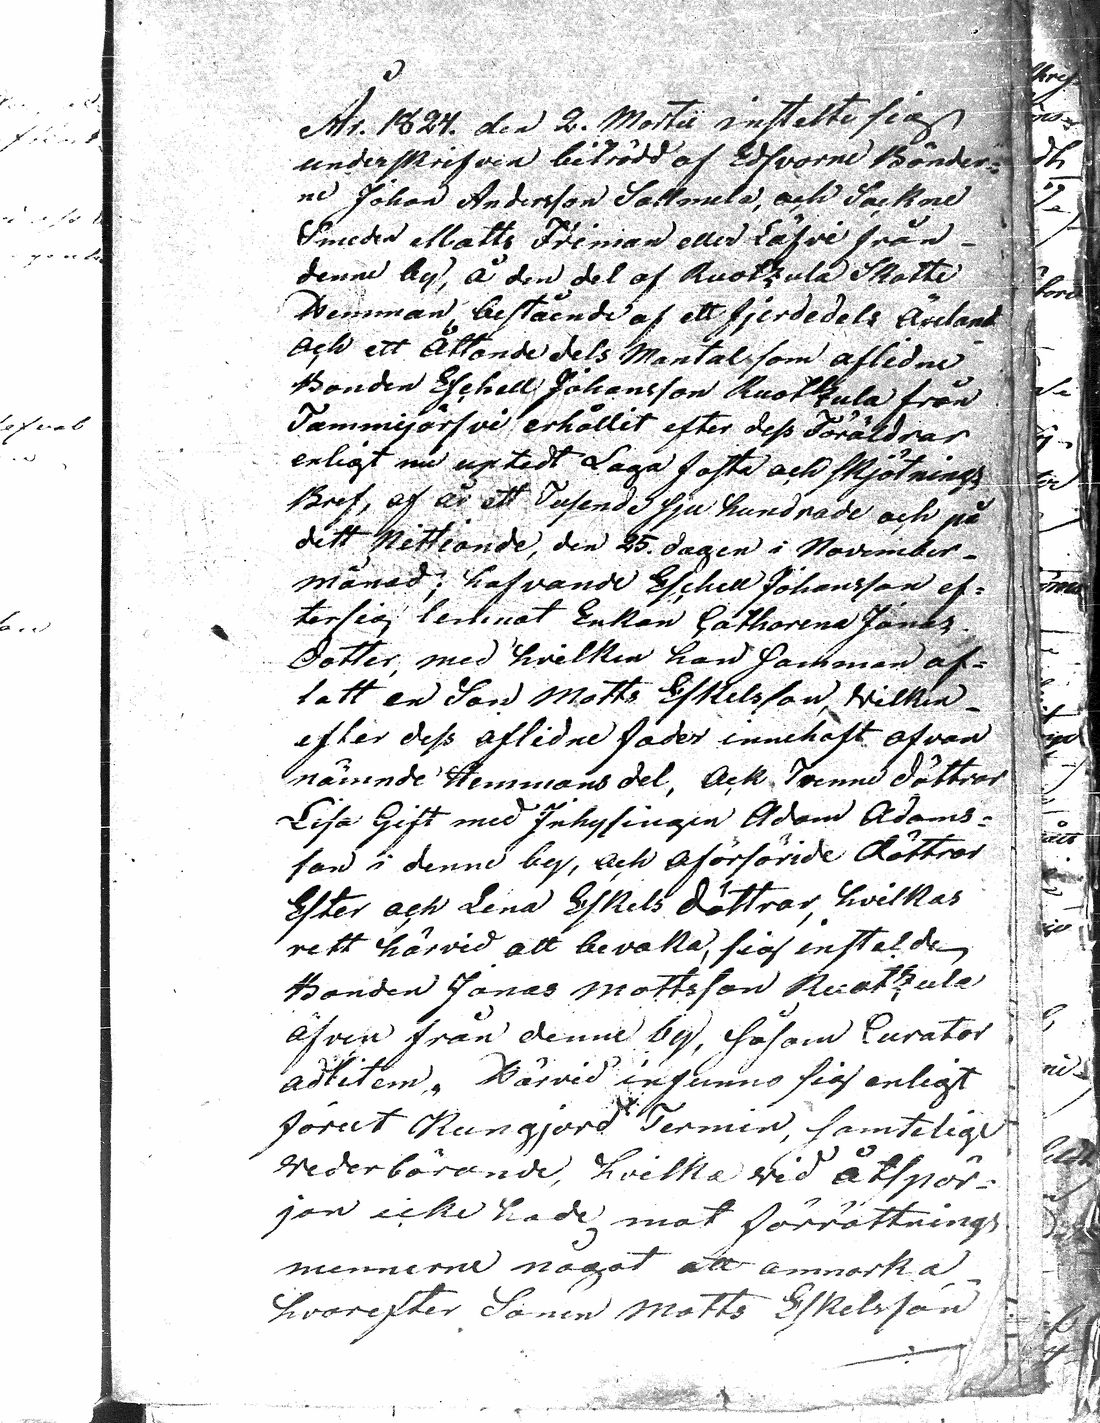 År. 1824. den 2. Martii instelte sig
underskrefven biträdd af Edsvorne Bönder-
ne Johan Andersson Sallmela, och Sockne
Smeden Matts Friman eller Läfvi från
denne by, å den del af Ruotzula Skatte
Hemman, bestående af ett fjerdedels Öresland
och ett Åttondedels Mantal som aflidne
Bonden Eschell Johansson Ruotzula från
Tammijärfvi erhållit efter dess Föräldrar
enligt nu uptedt Laga fasta och Skjötnings
Bref, af år ett Tusende sju hundrade och på
dett Nittionde, den 25. dagen i November
månad; hafvande Eschell Johansson ef-
ter sig lemnat Enkan Catharena Jonas
dotter, med hvilken han samman af-
latt en Son Matts Eskelsson, vilken
efter dess aflidne fader innehaft ofvan
nämnde Hemmans del, ack Tvenne döttrar
Lisa Gift med Inhysingen Adam Adams-
son i denne by, och oförsöride döttrar
Ester och Lena Eskels döttrar, hvilkas
rett härvid att bevaka, sig instelde
Bonden Jonas Mattsson Ruotzula
äfven från denne by, såsom Curator
adlitem. Härvid infunno sig enligt
förut Kungjord Termin, samtelige
vederbörande, hvilka vid åtspör-
jan icke hade mot förrättnings
mennerne något att anmarka
hvarefter Sonen Matts Eskelsson